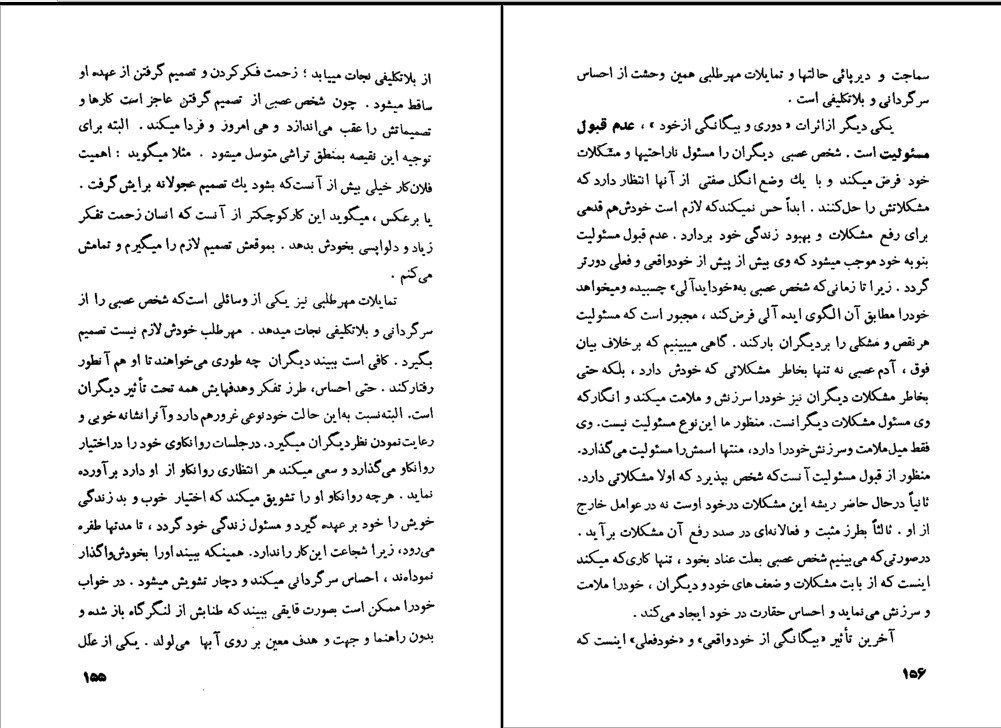 از بلاتکلیفی نجات مییابد ؛ زحمت فکر کردن و تصمیم گرفتن از عهده او
ساقط میشود . چون شخص عصبی از تصمیم گرفتن عاجز است کارها و
تصمیماتش را عقب می‌اندازد و هی امروز و فردا میکند . البته برای
توجیه این نقیصه بمنطق تراشی متوسل میشود . مثلا میگوید : اهمیت
فلان کار خیلی بیش از آنست که بشود یك تصمیم عجولانه برایش گرفت .
یا برعکس ، میگوید این کار کوچکتر از آنست که انسان زحمت تفکر
زیاد و دلواپسی بخودش بدهد . بموقعش تصمیم لازم را میگیرم و تمامش
می‌کنم .
تمایلات مهرطلبی نیز یکی از وسائلی است که شخص عصبی را از
سرگردانی و بلاتکلیفی نجات میدهد . مهرطلب خودش لازم نیست تصمیم
بگیرد . کافی است ببیند دیگران چه طوری می‌خواهند تا او هم آنطور
رفتار کند . حتی احساس، طرز تفکر و هدفهایش همه تحت تأثیر دیگران
است. البته نسبت به این حالت خود نوعی غرور هم دارد و آنرا نشانه خوبی و
رعایت نمودن نظر دیگران میگیرد. در جلسات روانکاوی خود را در اختیار
روانکاو می‌گذارد و سعی میکند هر انتظاری روانکاو از او دارد برآورده
نماید . هرچه روانکاو او را تشویق میکند که اختیار خوب و بد زندگی
خویش را خود بر عهده گیرد و مسئول زندگی خود گردد ، تا مدتها طفره
می‌رود، زیرا شجاعت این کار را ندارد. همینکه ببیند او را بخودش واگذار
نموده‌اند ، احساس سرگردانی میکند و دچار تشویش میشود . در خواب
خودرا ممکن است بصورت قایقی ببیند که طنابش از لنگرگاه باز شده و
بدون راهنما و جهت و هدف معین بر روی آبها می‌لولد . یکی از علل
۱۵۵
سماجت و دیرپائی حالتها و تمایلات مهرطلبی همین وحشت از احساس
سرگردانی و بلاتکلیفی است .
یکی دیگر از اثرات «دوری و بیگانگی از خود» ، عدم قبول
مسئولیت است . شخص عصبی دیگران را مسئول ناراحتیها و مشکلات
خود فرض میکند و با یك وضع انگل صفتی از آنها انتظار دارد که
مشکلاتش را حل کنند . ابداً حس نمیکند که لازم است خودش هم قدمی
برای رفع مشکلات و بهبود زندگی خود بردارد . عدم قبول مسئولیت
بنوبه خود موجب میشود که وی بیش از پیش از خود واقعی و فعلی دورتر
گردد . زیرا تا زمانی که شخص عصبی به «خود ایدآلی» چسبیده و میخواهد
خودرا مطابق آن الگوی ایده آلی فرض کند ، مجبور است که مسئولیت
هر نقص و مشکلی را بر دیگران بار کند . گاهی میبینیم که برخلاف بیان
فوق ، آدم عصبی نه تنها بخاطر مشکلاتی که خودش دارد ، بلکه حتی
بخاطر مشکلات دیگران نیز خودرا سرزنش و ملامت میکند و انگار که
وی مسئول مشکلات دیگران است. منظور ما این نوع مسئولیت نیست. وی
فقط میل ملامت و سرزنش خودرا دارد، منتها اسمش را مسئولیت می‌گذارد.
منظور از قبول مسئولیت آنست که شخص بپذیرد که اولا مشکلاتی دارد.
ثانیاً در حال حاضر ریشه این مشکلات در خود اوست نه در عوامل خارج
از او . ثالثاً بطرز مثبت و فعالانه‌ای در صدد رفع آن مشکلات برآید .
در صورتی که می‌بینیم شخص عصبی بعلت عناد بخود ، تنها کاری که میکند
اینست که از بابت مشکلات و ضعف های خود و دیگران ، خودرا ملامت
و سرزنش می‌نماید و احساس حقارت در خود ایجاد می‌کند .
آخرین تأثیر «بیگانگی از خود واقعی» و «خود فعلی» اینست که
۱۵۶